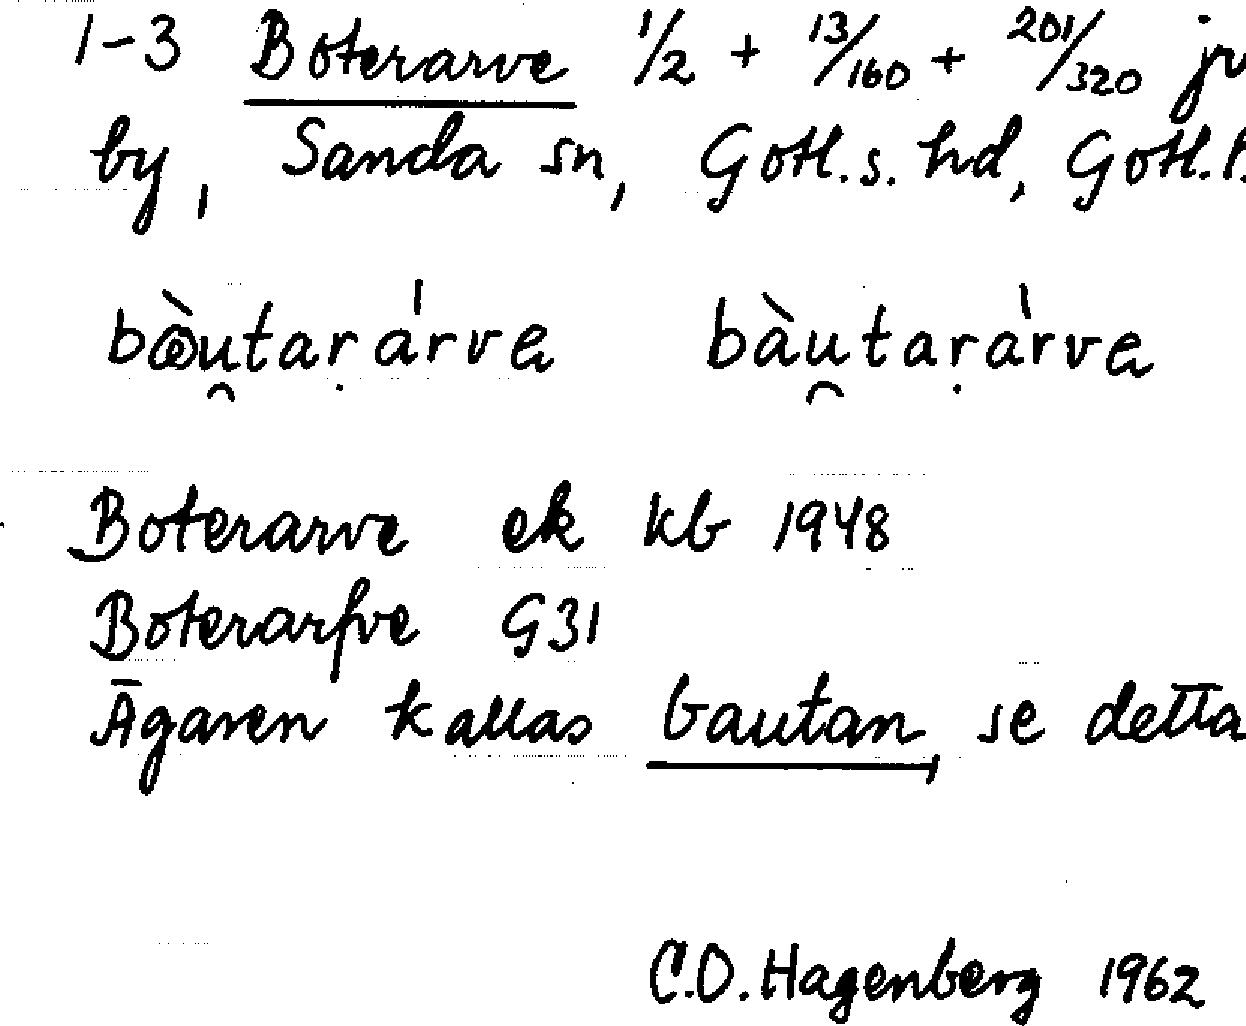 1-3 Boterarve 1/2 + 13/160 + 201/320
by, Sanda sn, Gotl.s. hd, Gotl.
bœ̀u̯taṛárve bàu̯taṛàrve
Boterarve ek kb 1948
Boterarfve G31
Ägaren kallas bautan, se detta
C.O. Hagenberg 1962